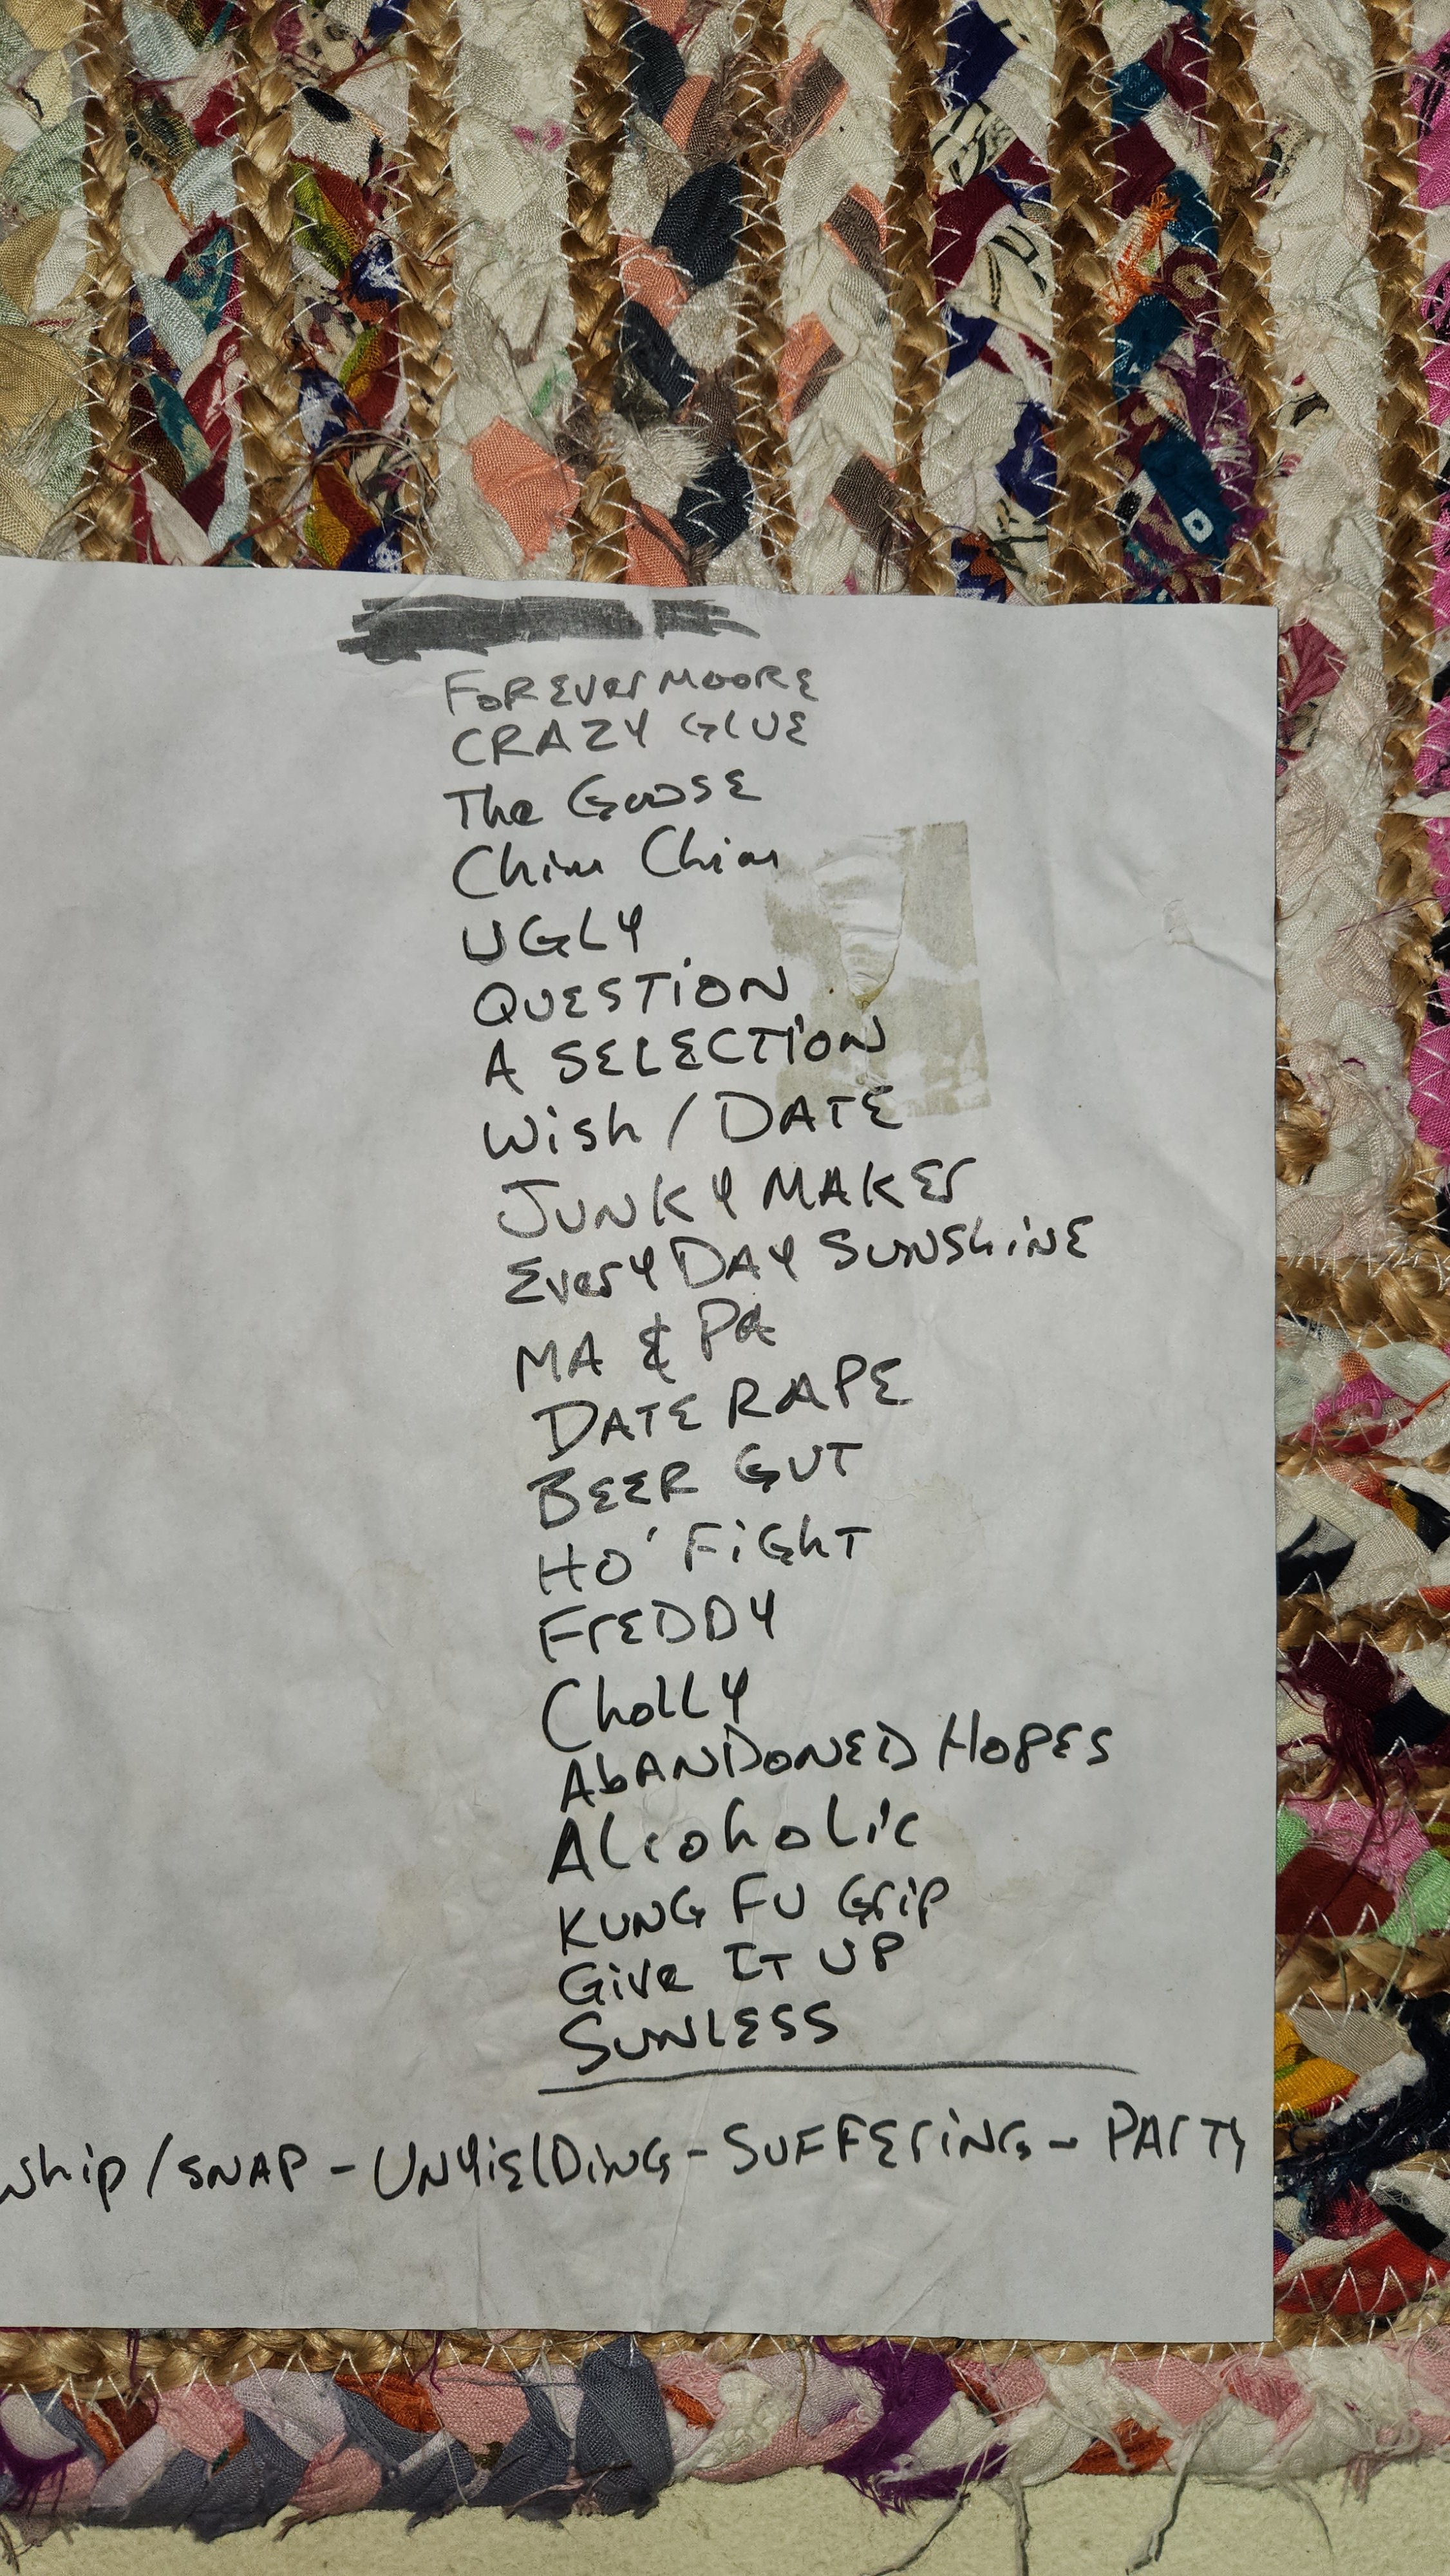 FOREVERMOORE
CRAZY GLUE
The GOOSE
Chim Chim
UGLY
QUESTiON
A SELECTiON
Wish / DATE
JUNKY MAKEr
EverY DAY SUNShiNE
MA & Pa
DATE RAPE
BEER GUT
HO' FiGhT
FrEDDY
ChoLLY
AbANDONED HOPES
ALcohoLic
KUNG FU Grip
Give IT UP
SUNLESS
ship / SNAP - UNYiElDiNG - SUFFEriNG - PArTY